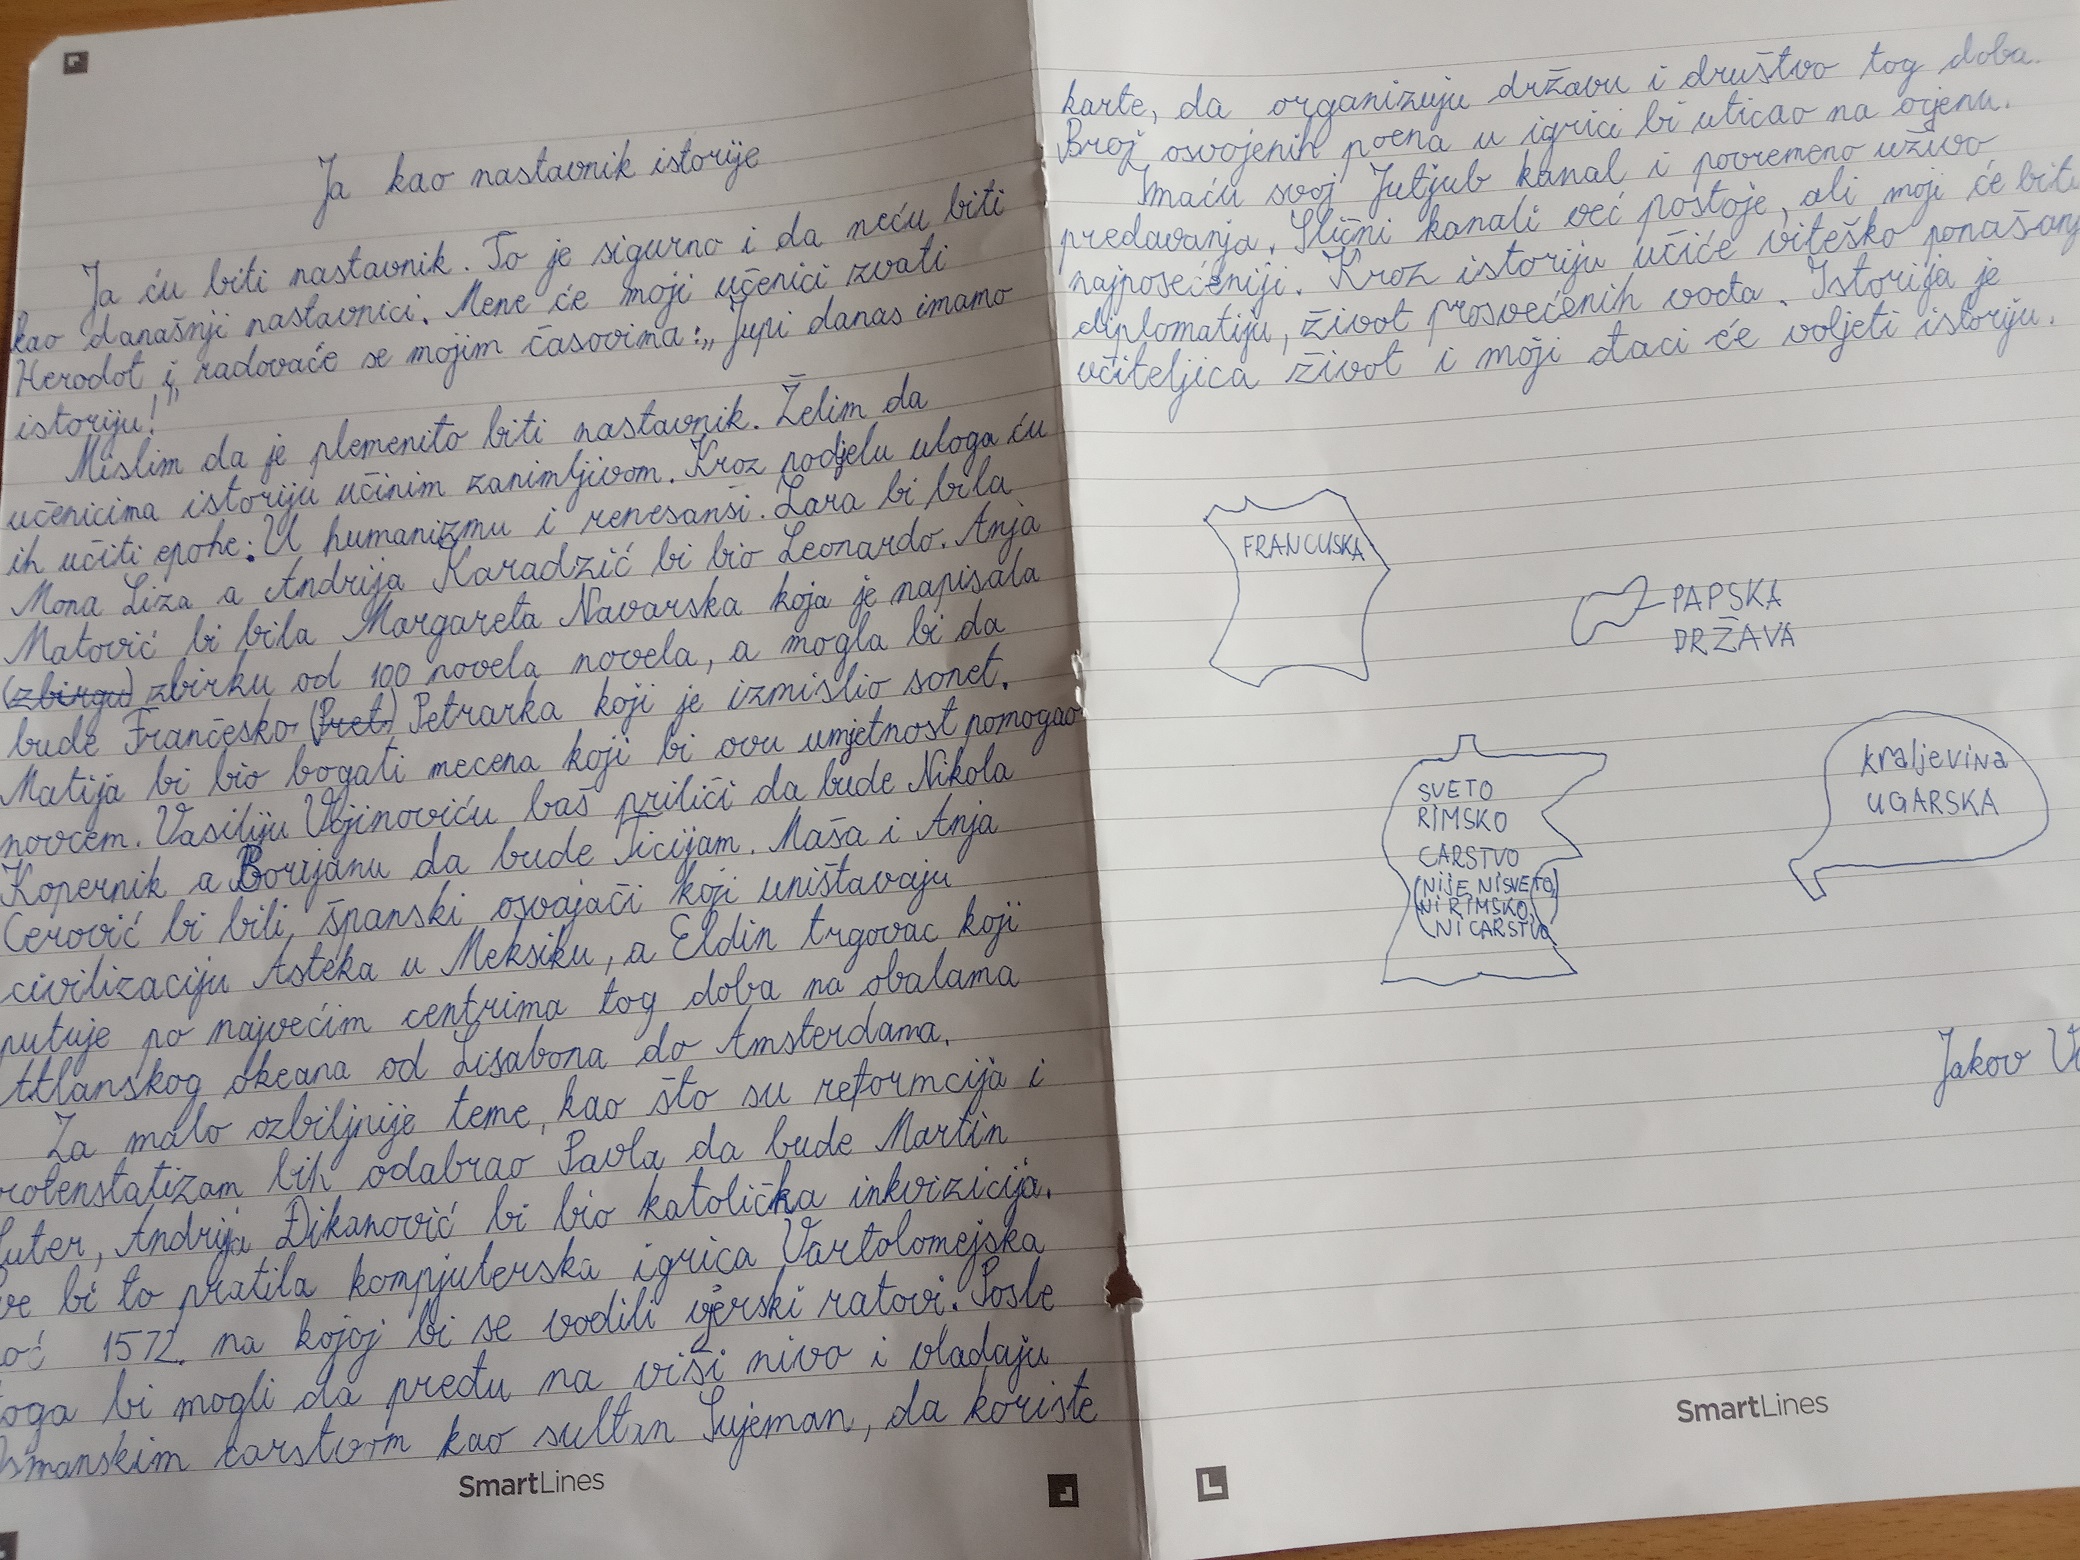 Ja kao nastavnik istorije
Ja ću biti nastavnik. To je sigurno i da neću biti
kao današnji nastavnici. Mene će moji učenici zvati
Herodot i radovaće se mojim časovima: „Jupi danas imamo
istoriju!"
Mislim da je plemenito biti nastavnik. Želim da
učenicima istoriju učinim zanimljivom. Kroz podjelu uloga ću
ih učiti epohe: U humanizmu i renesansi. Lara bi bila
Mona Liza a Andrija Karadzić bi bio Leonardo. Anja
Matović bi bila Margareta Navarska koja je napisala
(zbirgu) zbirku od 100 novela novela, a mogla bi da
bude Frančesko (Pret.) Petrarka koji je izmislio sonet.
Matija bi bio bogati mecena koji bi ovu umjetnost pomogao
novcem. Vasiliju Vojinoviću baš priliči da bude Nikola
Kopernik a Borijanu da bude Ticijam. Maša i Anja
Cerović bi bili, španski osvajači koji uništavaju
civilizaciju Asteka u Meksiku, a Eldin trgovac koji
putuje po najvećim centrima tog doba na obalama
Atlanskog okeana od Lisabona do Amsterdama.
Za malo ozbiljnije teme, kao što su reformcija i
rotenstatizam bih odabrao Pavla da bude Martin
Luter, Andrija Đikanović bi bio katolička inkvizicija.
ve bi to pratila kompjuterska igrica Vartolomejska
oć 1572. na kojoj bi se vodili vjerski ratovi. Posle
toga bi mogli da pređu na viši nivo i vladaju
Osmanskim carstvom kao sultan Sujeman, da koriste
SmartLines
karte, da organizuju državu i društvo tog doba.
Broj osvojenih poena u igrici bi uticao na ocjenu.
Imaću svoj Jutjub kanal i povremeno uživo
predavanja. Slični kanali već postoje, ali moji će biti
najposećeniji. Kroz istoriju učiće viteško ponašanj
diplomatiju, život prosvećenih vođa. Istorija je
učiteljica život i moji đaci će voljeti istoriju.
FRANCUSKA
PAPSKA
DRŽAVA
SVETO
RIMSKO
CARSTVO
(NIJE NI SVETO,
NI RIMSKO,
NI CARSTVO)
KraljeviNa
UGARSKA
Jakov
SmartLines